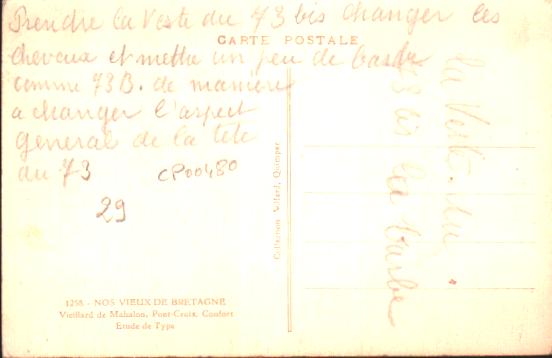 Prendre la Veste du 73 bis changer les
CARTE POSTALE
cheveux et mettre un peu de barbe
comme 73B. de manière
a changer l'aspect
général de la tête
du 73
CP00480
29
la Veste du
73 bis la barbe
Collection Villard, Quimper
1258 - NOS VIEUX DE BRETAGNE
Vieillard de Mahalon, Pont-Croix, Confort
Etude de Type